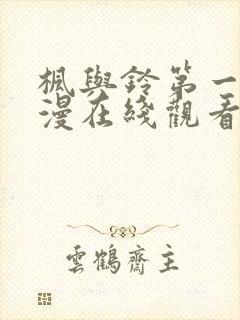 楓與鈴第一
漫在綫觀看
雲鶴齋主